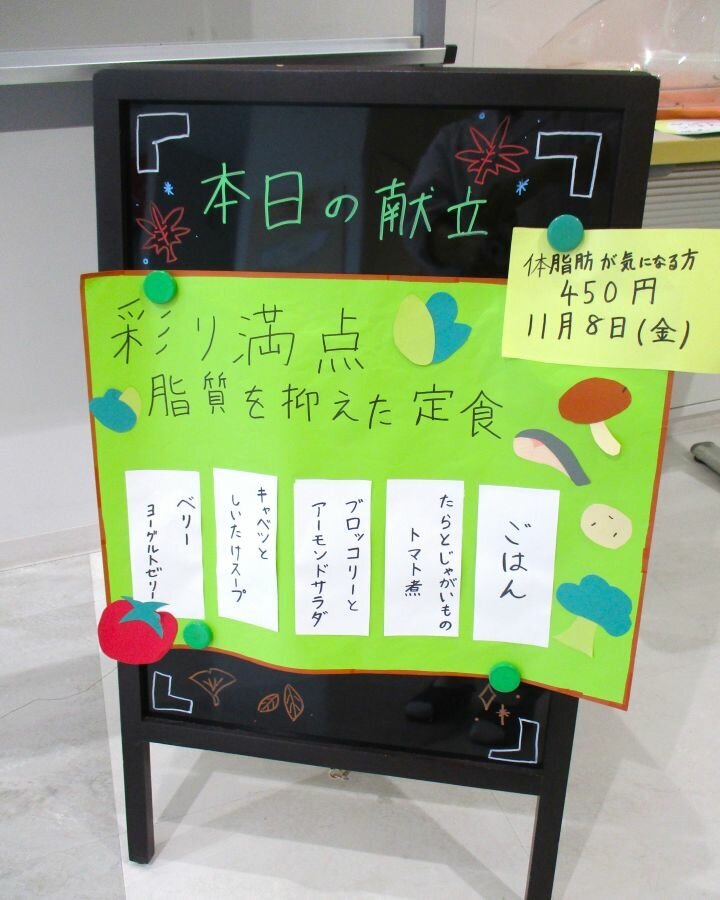 本日の献立
体脂肪が気になる方
450円
11月8日(金)
彩り満点
脂質を抑えた定食
ごはん
たらとじゃがいもの
トマト煮
ブロッコリーと
アーモンドサラダ
キャベツと
しいたけスープ
ベリー
ヨーグルトゼリー